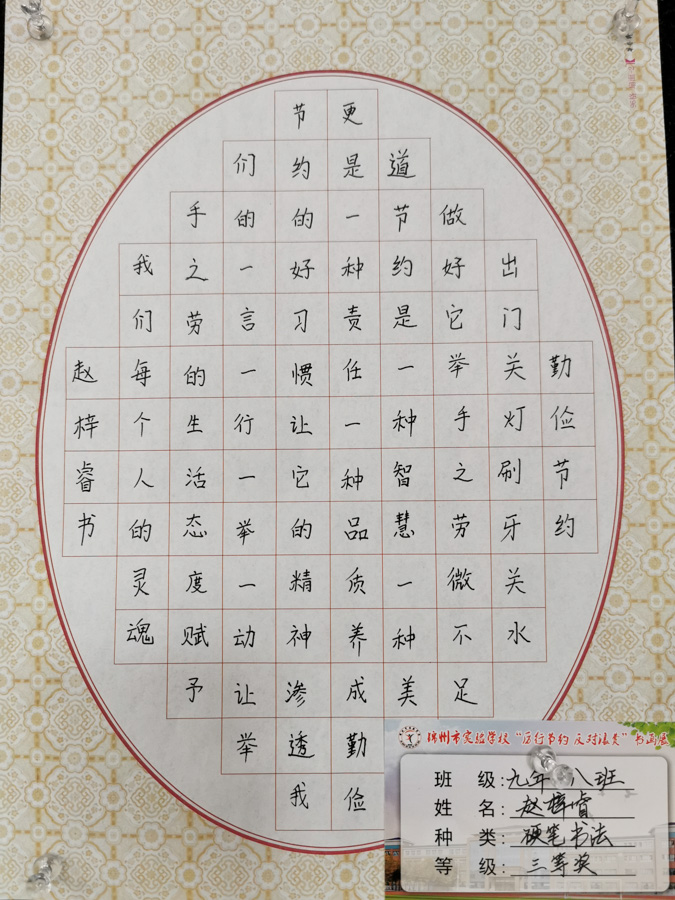 勤俭节约
出门关灯刷牙关水
做好它举手之劳微不足
道节约是一种智慧一种美
更是一种责任一种品质养成勤俭
节约的好习惯让它的精神渗透我
们的一言一行一举一动让举
手之劳的生活态度赋予
我们每个人的灵魂
赵梓睿书
锦州市实验学校“厉行节约 反对浪费”书画展
班 级:九年 八班
姓 名:赵梓睿
种 类:硬笔书法
等 级:三等奖